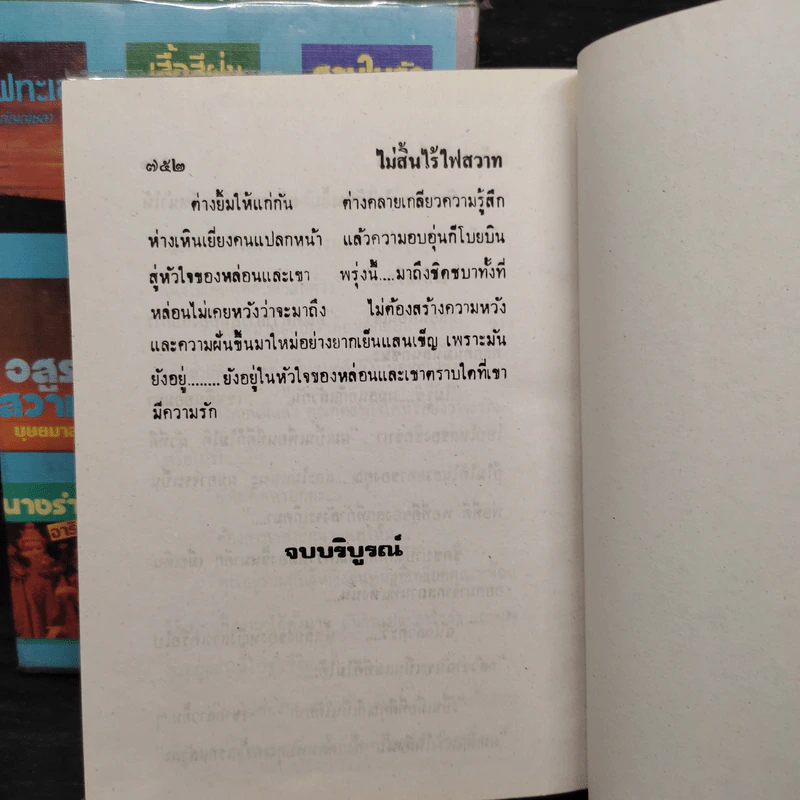 เสื้อสีฝุ่น
๗๕๒ ไม่สิ้นไร้ไฟสวาท
ต่างยิ้มให้แก่กัน ต่างคลายเกลียวความรู้สึก
ห่างเหินเยี่ยงคนแปลกหน้า แล้วความอบอุ่นก็โบยบิน
สู่หัวใจของหล่อนและเขา พรุ่งนี้....มาถึงชิดชบาทั้งที่
หล่อนไม่เคยหวังว่าจะมาถึง ไม่ต้องสร้างความหวัง
และความฝันขึ้นมาใหม่อย่างยากเย็นแสนเข็ญ เพราะมัน
ยังอยู่........ยังอยู่ในหัวใจของหล่อนและเขาตราบใดที่เขา
มีความรัก
จบบริบูรณ์
อสูร
สวาท
บุษยมาส
นางรำ